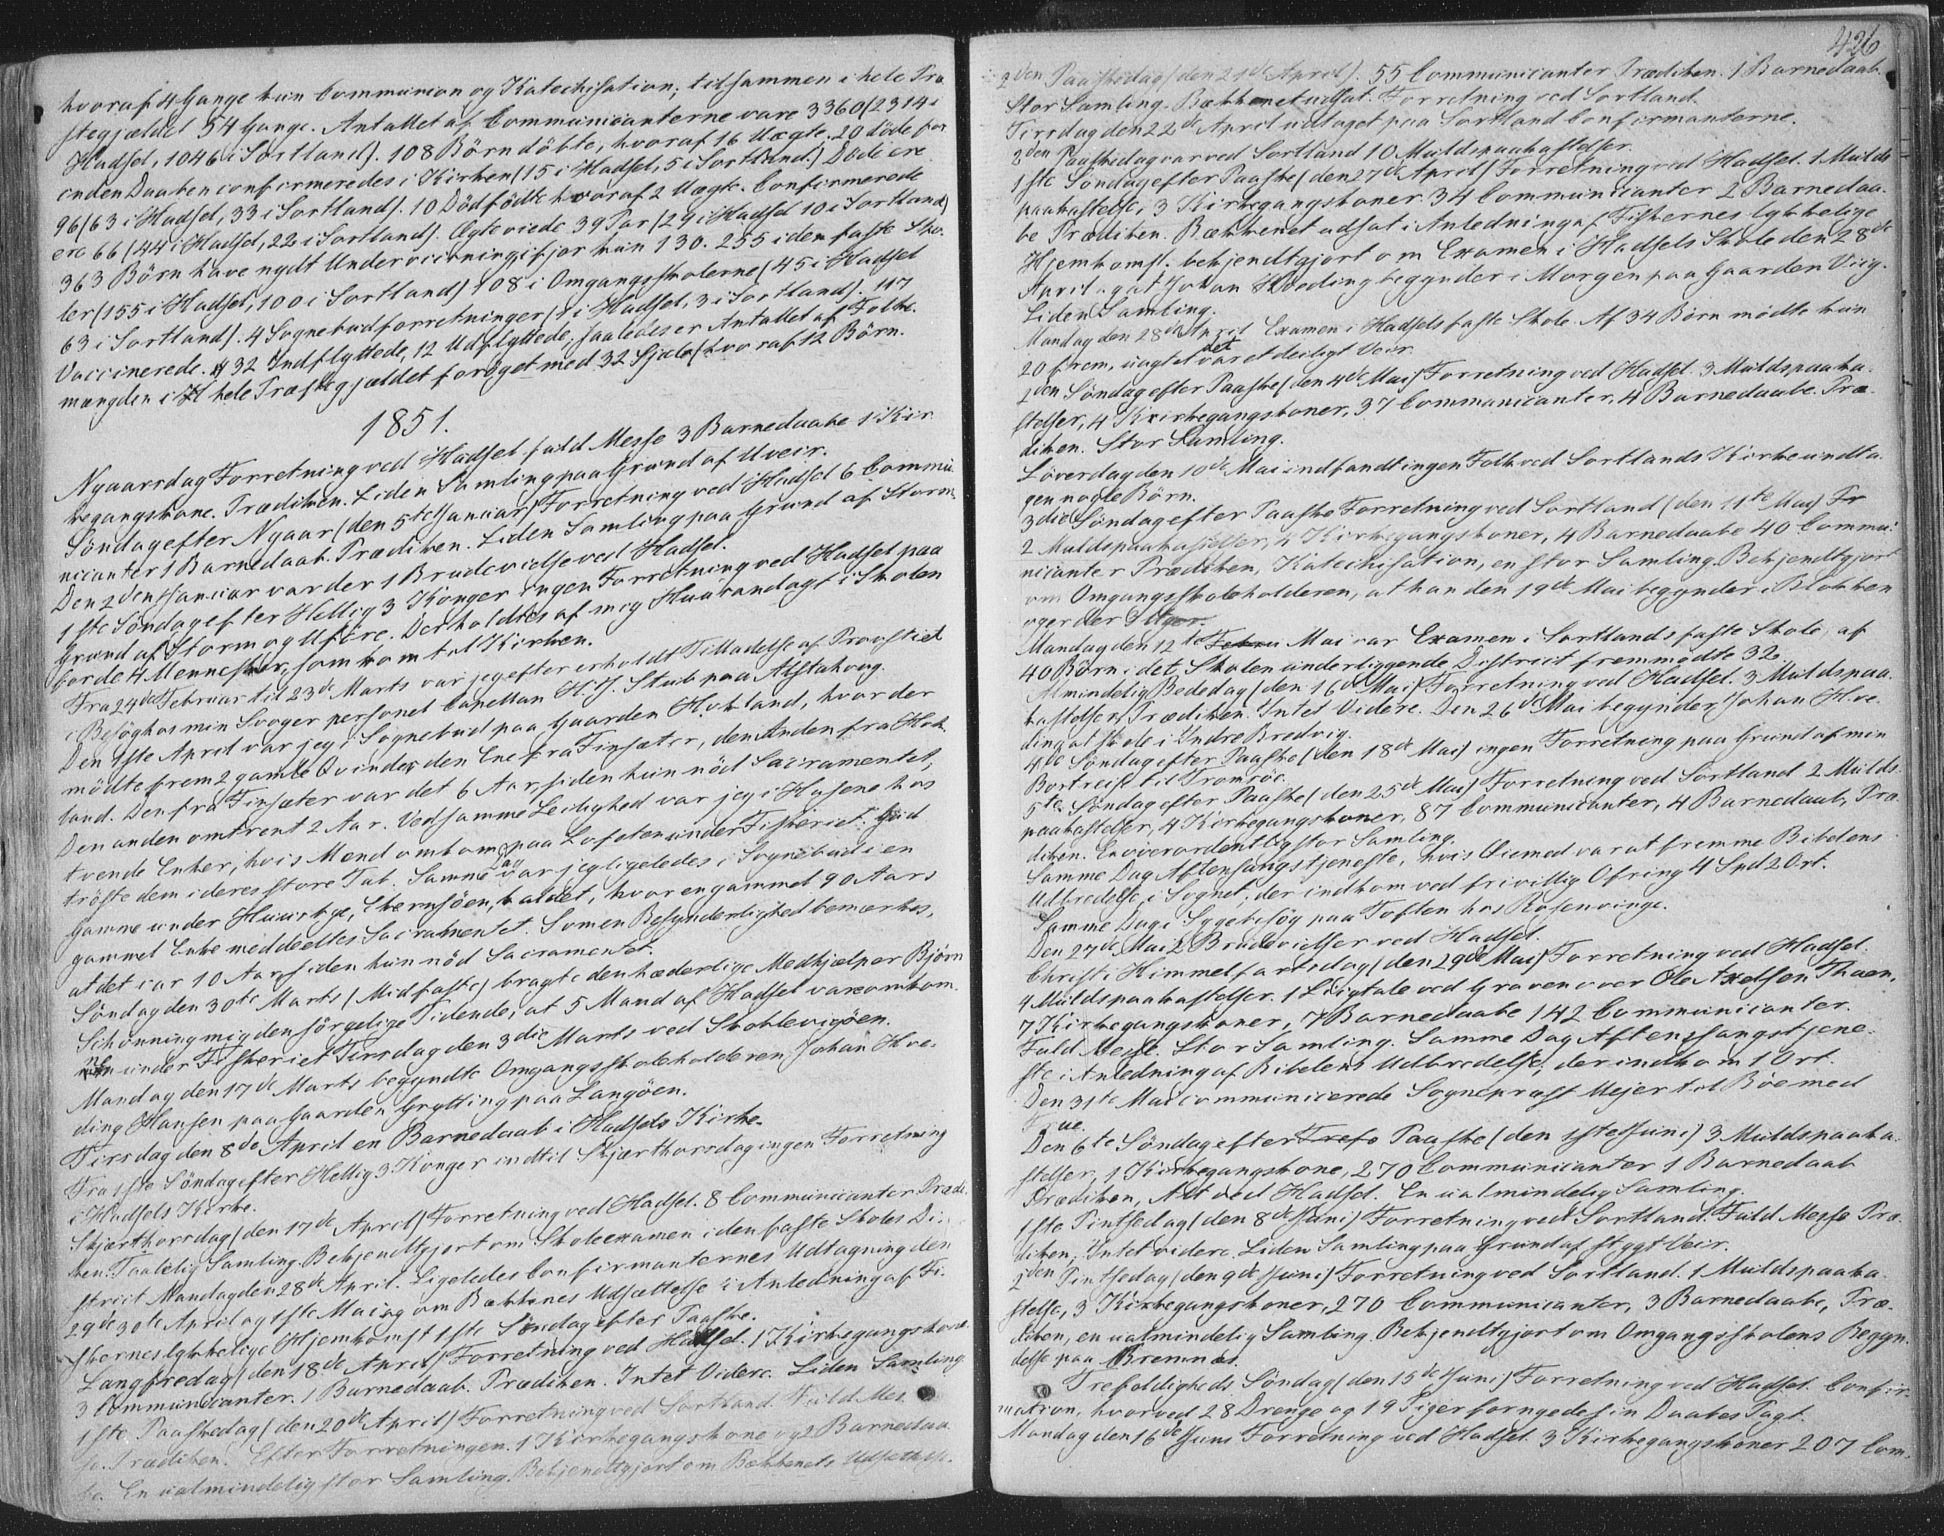 hvoraf 4 Gange kun Communion og Katechisation; tilsammen i hele Præ
stegjældet 54 Gange. Antallet af Communicanterne vare 3360 (2314 i
Hadsel, 1046 i Sortland). 108 Börn döbte, hvoraf 16 Uægte. 20 döde for
enden Daaben confirmeredes i Kirken (15 i Hadsel, 5 i Sortland.) Döde ere
96 (63 i Hadsel, 33 i Sortland). 10 Dödfödte hvoraf 2 Uægte. Confirmerede
ere 66 (44 i Hadsel, 22 i Sortland). Ægteviede 39 Par (29 i Hadsel 10 i Sortland)
363 Börn have nydt Underviisning ifjor kun 130. 255 i den faste Sko-
ler (155 i Hadsel, 100 i Sortland) 108 i Omgangsskolerne (45 i Hadsel
63 i Sortland). 4 Sognebudforretninger (1 i Hadsel, 3 i Sortland). 117
Vaccinerede. 32 Indflyttede, 12 Udflyttede, saaledes er Antallet af Folke-
mængden i hele Præstegjældet foröget med 32 Sjæle (hvoraf 12 Börn.
1851.
Nyaarsdag Forretning ved Hadsel fuld Messe 3 Barnedaabe 1 Kir-
kegangskone. Prædiken. Liden Samling paa Grund af Uveir.
Söndag efter Nyaar (den 5te Januar) Forretning ved Hadsel 6 Commu-
nicanter 1 Barnedaab. Prædiken. Liden Samling paa Grund af Storm.
Den 2den Januar var der 1 Brudevielse ved Hadsel.
1ste Söndag efter Hellig 3 Konger ingen Forretning ved Hadsel paa
Grund af Storm og Uföre. Der holdtes af mig Huusandagt i Skolen
for de 4 Mennesker, som kom til Kirken.
Fra 24de Februar til 23de Marts var jeg efter erholdt Tilladelse af Provstiet
i Besög hos min Svoger personel Capellan H. J. Stub paa Alstahoug.
Den 1ste April var jeg i Sognebud paa Gaarden Hokland, hvor der
mödte frem 2 gamle Qvinder, den Ene fra Finsæter, den Anden fra Hok-
land. Den fra Finsæter var det 6 Aar, siden hun nöd Sacramentet,
Den anden omtrent 2 Aar. Ved samme Leilighed var jeg i Husene hos
tvende Enker, hvis Mænd omkom paa Lofoten under Fiskeriet. Gud
tröste dem i deres store Tab. Samme Dag var jeg ligeledes i Sognebud i en
Gamme under kaldet, hvor en gammel 90 Aars
gammel Enke meddeeltes Sacramentet. Som en Besynderlighed bemærkes,
at det var 10 Aar, siden hun nöd Sacramentet.
Söndag den 30te Marts (Midfaste) bragte den hæderlige Medhjælper Björn
Schönning mig den sörgelige Tidende, at 5 Mand af Hadsel vare omkom-
ne under Fiskeriet Tirsdag den 3die Marts ved
Mandag den 17de Marts begyndte Omgangsskoleholderen Johan Hve-
ding Hansen paa Gaarden Grytting paa Langöen.
Tirsdag den 8de April en Barnedaab i Hadsels Kirke.
Fra 1ste Söndag efter Hellig 3 Konger indtil Skjærthorsdag ingen Forretning
i Hadsels Kirke.
Skjærthorsdag (den 17de April) Forretning ved Hadsel. 8 Communicanter Prædi-
ken. Taalelig Samling. Bekjendtgjort om Skoleexamen i den faste Skoles Di-
strict Mandag den 28de April. Ligeledes Confirmanternes Udtagning den
29de 30te April og 1ste Mai og om Bækkenes Udsættelse i Anledning af Fi-
skernes lykkelige Hjemkomst 1ste Söndag efter Paaske.
Langfredag (den 18de April) Forretning ved Hadsel. 1 Kirkegangskone
3 Communicanter. 1 Barnedaab. Prædiken. Intet Videre. Liden Samling.
1ste Paaskedag (den 20de April) Forretning ved Sortland. Fuld Mes-
se. Prædiken. Efter Forretningen 1 Kirkegangskone og 2 Barnedaa-
be. En ualmindelig stor Samling. Bekjendtgjort om Bækkenets Udsættelse.
426
2den Paaskedag (den 21de April). 55 Communicanter Prædiken. 1 Barnedaab.
Stor Samling. Bækkenet udsat. Forretning ved Sortland.
Tirsdag den 22de April udtaget paa Sortland Confirmanterne.
2den Paaskedag var ved Sortland 10 Muldspaakastelser.
1ste Söndag efter Paaske (den 27de April) Forretning ved Hadsel. 1 Mulds-
paakastelse, 3 Kirkegangskoner 34 Communicanter 2 Barnedaa-
be Prædiken. Bækkenet udsat i Anledning af Fiskernes lykkelige
Hjemkomst. bekjendtgjort om Examen i Hadsels Skole den 28de
April. og at Johan Hveding begynder i Morgen paa Gaarden Viig.
Liden Samling.
Mandag den 28de April Examen i Hadsels faste Skole. Af 34 Börn mödte kun
20 frem, uagtet det var et deiligt Veir.
2den Söndag efter Paaske (den 4de Mai) Forretning ved Hadsel. 3 Muldspaaka-
stelser, 4 Kirkegangskoner, 37 Communicanter, 4 Barnedaabe. Præ-
diken. Stor Samling.
Löverdag den 10de Mai indfandt ingen Folk ved Sortlands Kirke undta-
gen nogle Börn.
3die Söndag efter Paaske Forretning ved Sortland (den 11te Mai) Fr
2 Muldspaakastelser, 4 Kirkegangskoner, 4 Barnedaabe 40 Commu-
nicanter Prædiken, Katechisation, en stor Samling. Bekjendtgjort
om Omgangsskoleholderen, at han den 19de Mai begynder i Blokken
og er der
Mandag den 12te Mai var Examen i Sortlands faste Skole, af
40 Börn i det, Skolen underliggende District fremmödte 32
Almindelig Bededag (den 16de Mai) Forretning ved Hadsel. 3 Muldspaa-
kastelser. Prædiken. Intet Videre. Den 26de Mai begynder Johan Hve-
ding at skole i Indre Bredvig.
4de Söndag efter Paaske (den 18de Mai) ingen Forretning paa Grund af min
Bortreise til Tromsöe.
5te Söndag efter Paaske (den 25de Mai) Forretning ved Sortland 2 Mulds-
paakastelser, 4 Kirkegangskoner, 87 Communicanter, 4 Barnedaab, Præ-
diken. En overordentlig stor Samling.
Samme Dag Aftensangstjeneste, hvis Öiemed var at fremme Bibelens
Udbredelse i Sognet, der indkom ved frivillig Ofring 4 Spd 2 Ort.
Samme Dag i Sygebesög paa Toften hos Rosenvinge.
Den 27de Mai 2 Brudevielser ved Hadsel.
Christi Himmelfartsdag (den 29de Mai) Forretning ved Hadsel.
4 Muldspaakastelser. 1 Liigtale ved Graven over Ole Axelsen Thuen,
7 Kirkegangskoner, 7 Barnedaabe 142 Communicanter.
Fuld Messe. Stor Samling. Samme Dag Aftensangstjene-
ste i Anledning af Bibelens Udbredelse, der indkom 1 Ort.
Den 31te Mai communicerede Sognepræst Mejer til Böe med
Frue.
Den 6te Söndag efter Paaske (den 1ste Juni) 3 Muldspaaka-
stelser, 1 Kirkegangskone, 270 Communicanter 1 Barnedaab
Prædiken, Alt ved Hadsel. En ualmindelig Samling.
1ste Pintsedag (den 8de Juni) Forretning ved Sortland. Fuld Messe Præ-
diken. Intet videre. Liden Samling paa Grund af stygt Veir.
2den Pintsedag (den 9de Juni) Forretning ved Sortland. 1 Muldspaaka-
stelse, 3 Kirkegangskoner, 270 Communicanter, 3 Barnedaabe, Præ-
diken, en ualmindelig Samling. Bekjendtgjort om Omgangsskolens Begyn-
delse paa Bremnæs.
Trefoldigheds Söndag (den 15de Juni) Forretning ved Hadsel. Confir-
mation, hvorved 28 Drenge og 19 Piger fornyede sin Daabes Pagt.
Mandag den 16de Juni Forretning ved Hadsel. 3 Kirkegangskoner 207 Com-